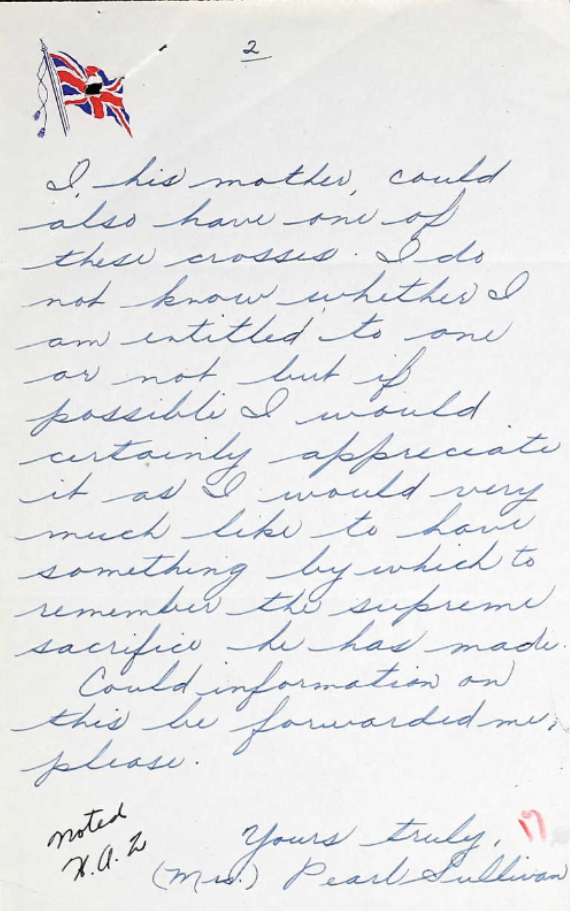 2
I, his mother, could
also have one of
these crosses. I do
not know whether I
am entitled to one
or not but if
possible I would
certainly appreciate
it as I would very
much like to have
something by which to
remember the supreme
sacrifice he has made.
Could information on
this be forwarded me,
please.
Yours truly,
(Mrs.) Pearl Sullivan
noted